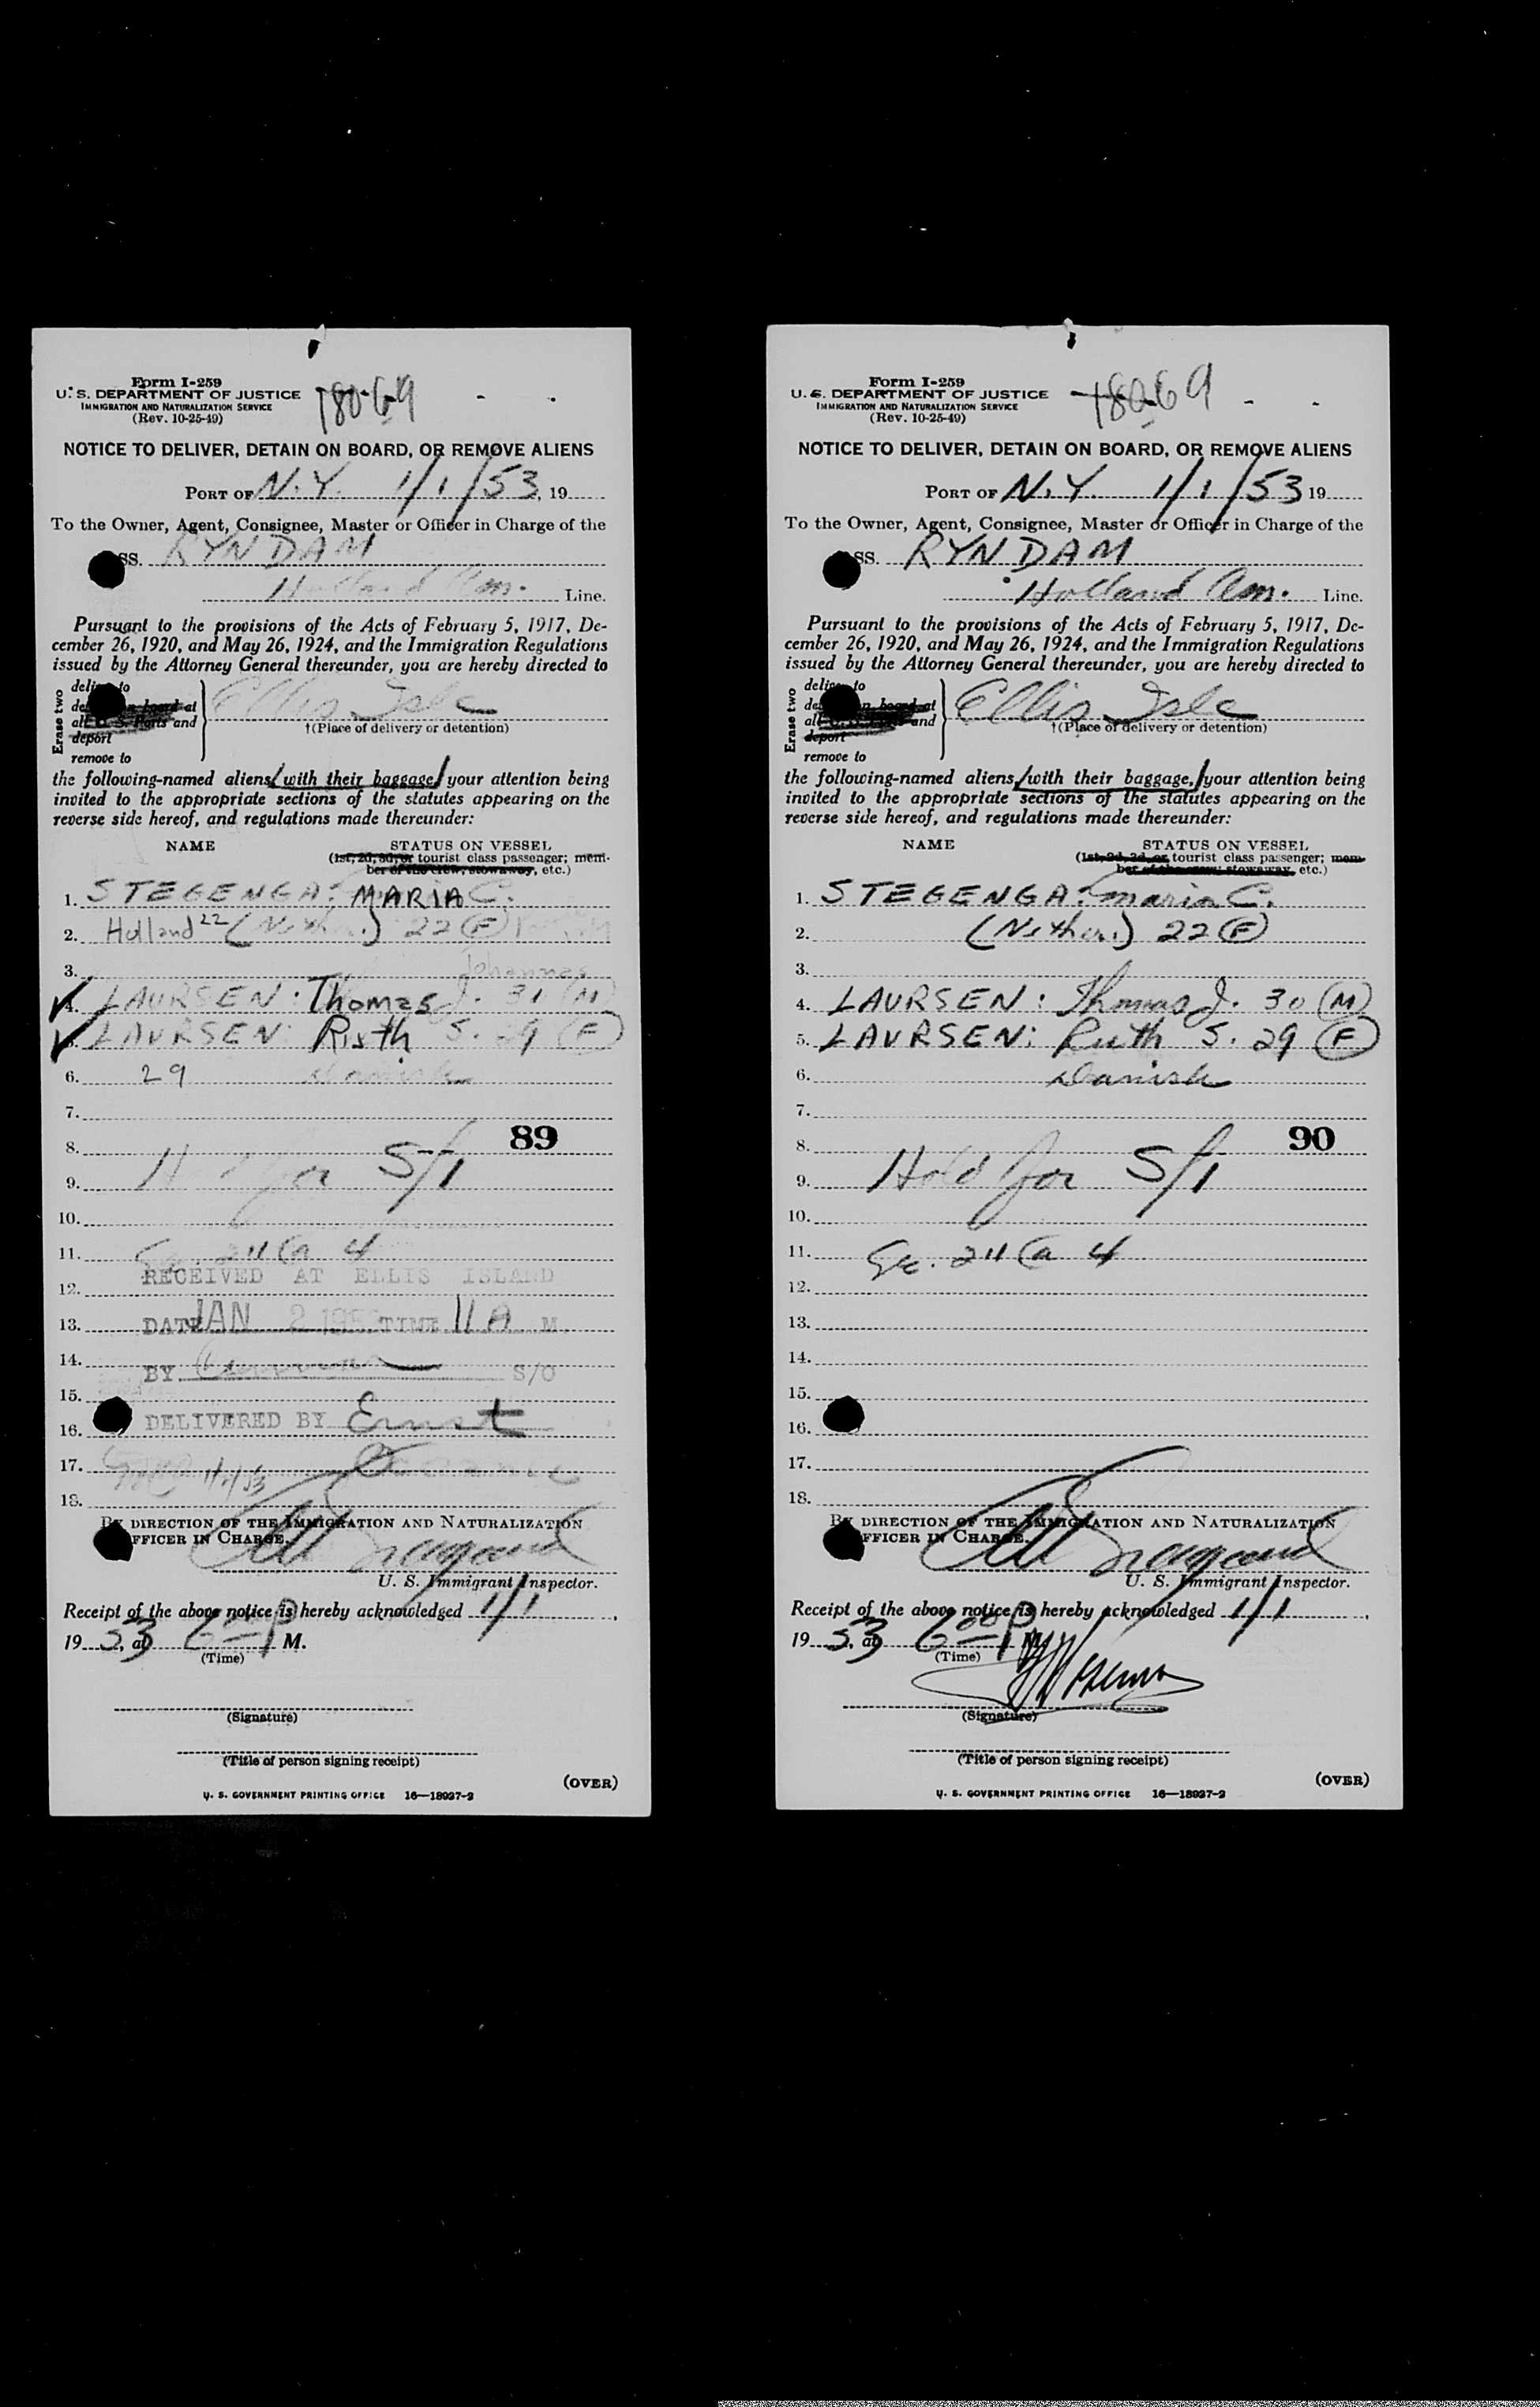 Form I-259
U. S. DEPARTMENT OF JUSTICE
IMMIGRATION AND NATURALIZATION SERVICE
(Rev. 10-25-49)
78069
NOTICE TO DELIVER, DETAIN ON BOARD, OR REMOVE ALIENS
PORT OF N.Y. 1/1/53, 19
To the Owner, Agent, Consignee, Master or Officer in Charge of the
SS. RYNDAM
Holland Am. Line.
Pursuant to the provisions of the Acts of February 5, 1917, De-
cember 26, 1920, and May 26, 1924, and the Immigration Regulations
issued by the Attorney General thereunder, you are hereby directed to
Erase two
deliver to
on board at
all U. S. Ports and
deport
remove to
Ellis Isle
†(Place of delivery or detention)
the following-named aliens, with their baggage, your attention being
invited to the appropriate sections of the statutes appearing on the
reverse side hereof, and regulations made thereunder:
NAME STATUS ON VESSEL
(1st, 2d, 3d, or tourist class passenger; mem-
ber of the crew, stowaway, etc.)
1. STEGENGA: MARIA C.
2. Holland 22 (Nether.) 22 (F)
3. Johannes
4. LAURSEN: Thomas J. 31 (M)
5. LAURSEN: Ruth S. 29 (F)
6. 29 Danish
7.
8. 89
9. Hold for S/I
10.
11. 211 Ca 4
12. RECEIVED AT ELLIS ISLAND
13. DATE JAN 2 195 TIME 11 A M.
14. BY S/O
15.
16. DELIVERED BY Ernst
17.
18.
BY DIRECTION OF THE IMMIGRATION AND NATURALIZATION
OFFICER IN CHARGE.
U. S. Immigrant Inspector.
Receipt of the above notice is hereby acknowledged 1/1,
19 53, at 6 00 P M.
(Time)
(Signature)
(Title of person signing receipt)
(OVER)
U. S. GOVERNMENT PRINTING OFFICE 16—18927-2
Form I-259
U. S. DEPARTMENT OF JUSTICE
IMMIGRATION AND NATURALIZATION SERVICE
(Rev. 10-25-49)
78069
NOTICE TO DELIVER, DETAIN ON BOARD, OR REMOVE ALIENS
PORT OF N.Y. 1/1/53 19
To the Owner, Agent, Consignee, Master or Officer in Charge of the
SS. RYNDAM
Holland Am. Line.
Pursuant to the provisions of the Acts of February 5, 1917, De-
cember 26, 1920, and May 26, 1924, and the Immigration Regulations
issued by the Attorney General thereunder, you are hereby directed to
Erase two
deliver to
on board at
all U. S. Ports and
deport
remove to
Ellis Isle
†(Place of delivery or detention)
the following-named aliens, with their baggage, your attention being
invited to the appropriate sections of the statutes appearing on the
reverse side hereof, and regulations made thereunder:
NAME STATUS ON VESSEL
(1st, 2d, 3d, or tourist class passenger; mem-
ber of the crew, stowaway, etc.)
1. STEGENGA: Maria C.
2. (Nether.) 22 (F)
3.
4. LAURSEN: Thomas J. 30 (M)
5. LAURSEN: Ruth S. 29 (F)
6. Danish
7.
8. 90
9. Hold for S/I
10.
11. 211 Ca 4
12.
13.
14.
15.
16.
17.
18.
BY DIRECTION OF THE IMMIGRATION AND NATURALIZATION
OFFICER IN CHARGE.
U. S. Immigrant Inspector.
Receipt of the above notice is hereby acknowledged 1/1,
19 53, at 6 00 P M.
(Time)
(Signature)
(Title of person signing receipt)
(OVER)
U. S. GOVERNMENT PRINTING OFFICE 16—18927-2